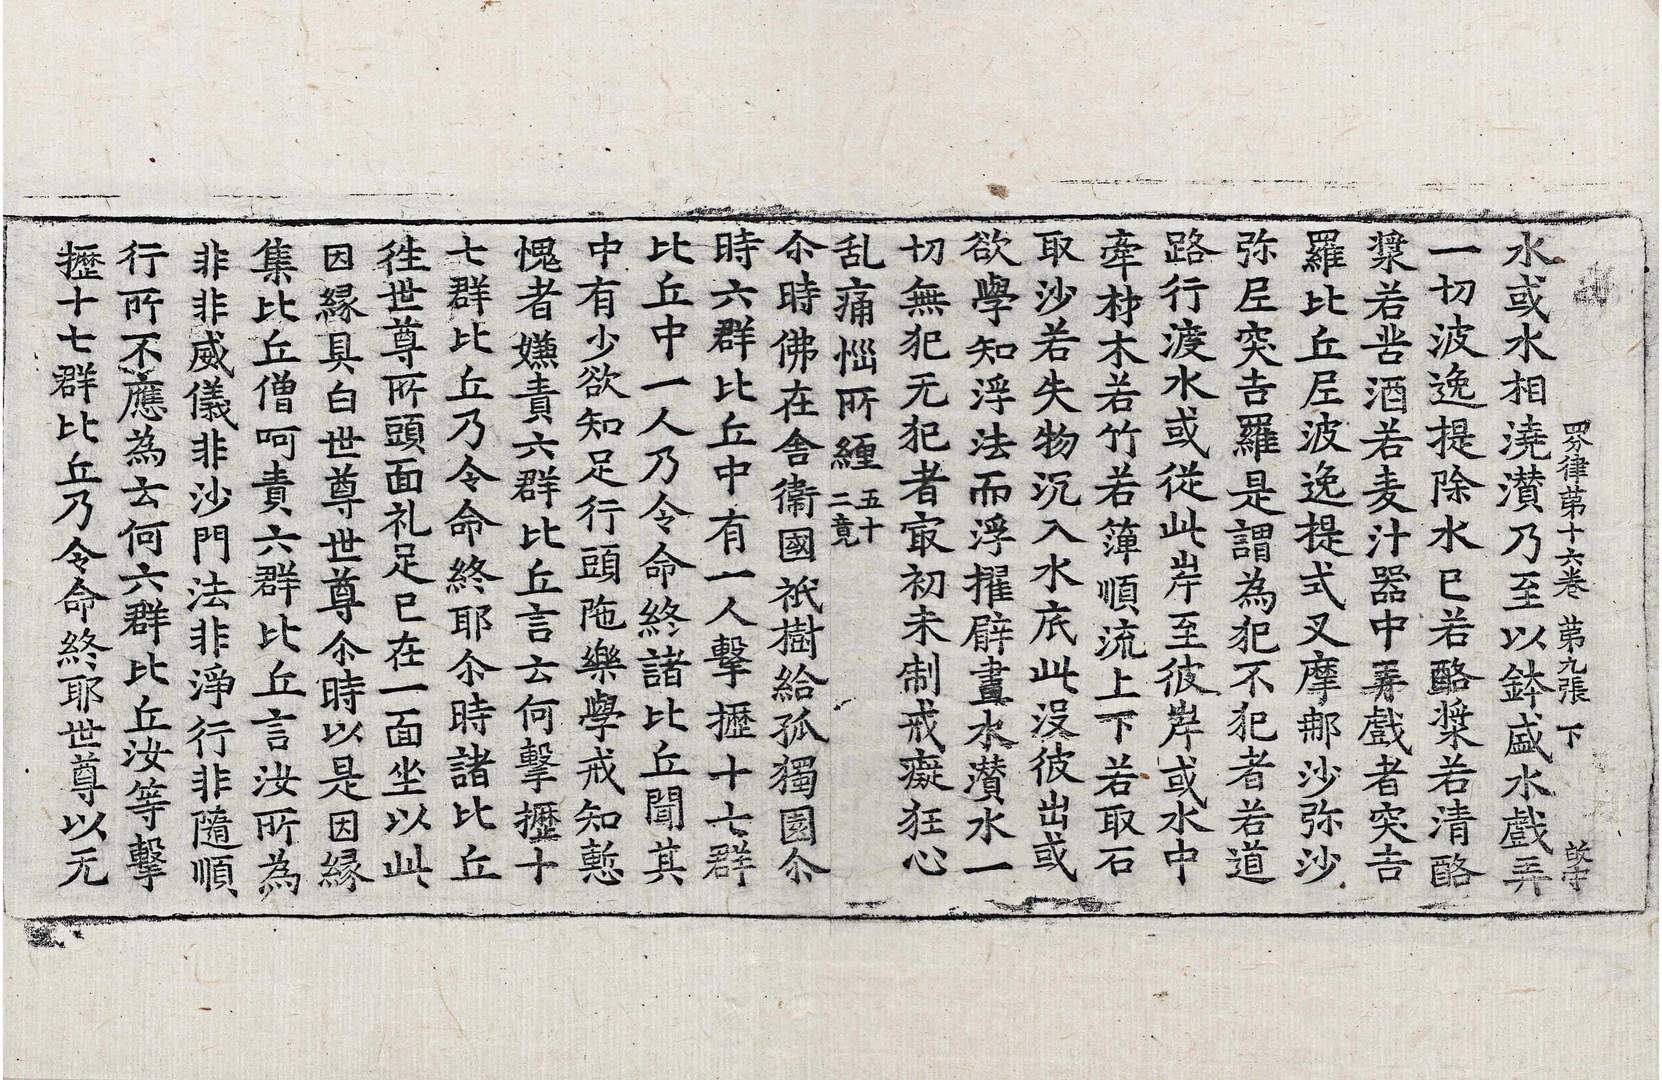 四分律第十六卷 第九張 下
水或水相澆灒乃至以鉢盛水戲弄
一切波逸提除水已若酪漿若清酪
漿若苦酒若麦汁器中弄戲者突吉
羅比丘尼波逸提式叉摩那沙弥沙
弥尼突吉羅是謂為犯不犯者若道
路行渡水或從此岸至彼岸或水中
牽材木若竹若簰順流上下若取石
取沙若失物沉入水底此没彼出或
欲學知浮法而浮擢臂畫水灒水一
切無犯无犯者㝡初未制戒癡狂心
乱痛惱所纏 五十二竟
尒時佛在舍衛國祇樹給孤獨園尒
時六群比丘中有一人擊攊十七群
比丘中一人乃令命終諸比丘聞其
中有少欲知足行頭陁樂學戒知慙
愧者嫌責六群比丘言云何擊攊十
七群比丘乃令命終耶尒時諸比丘
徃世尊所頭面礼足已在一面坐以此
因縁具白世尊世尊尒時以是因縁
集比丘僧呵責六群比丘言汝所為
非非威儀非沙門法非淨行非隨順
行所不應為云何六群比丘汝等擊
攊十七群比丘乃令命終耶世尊以无